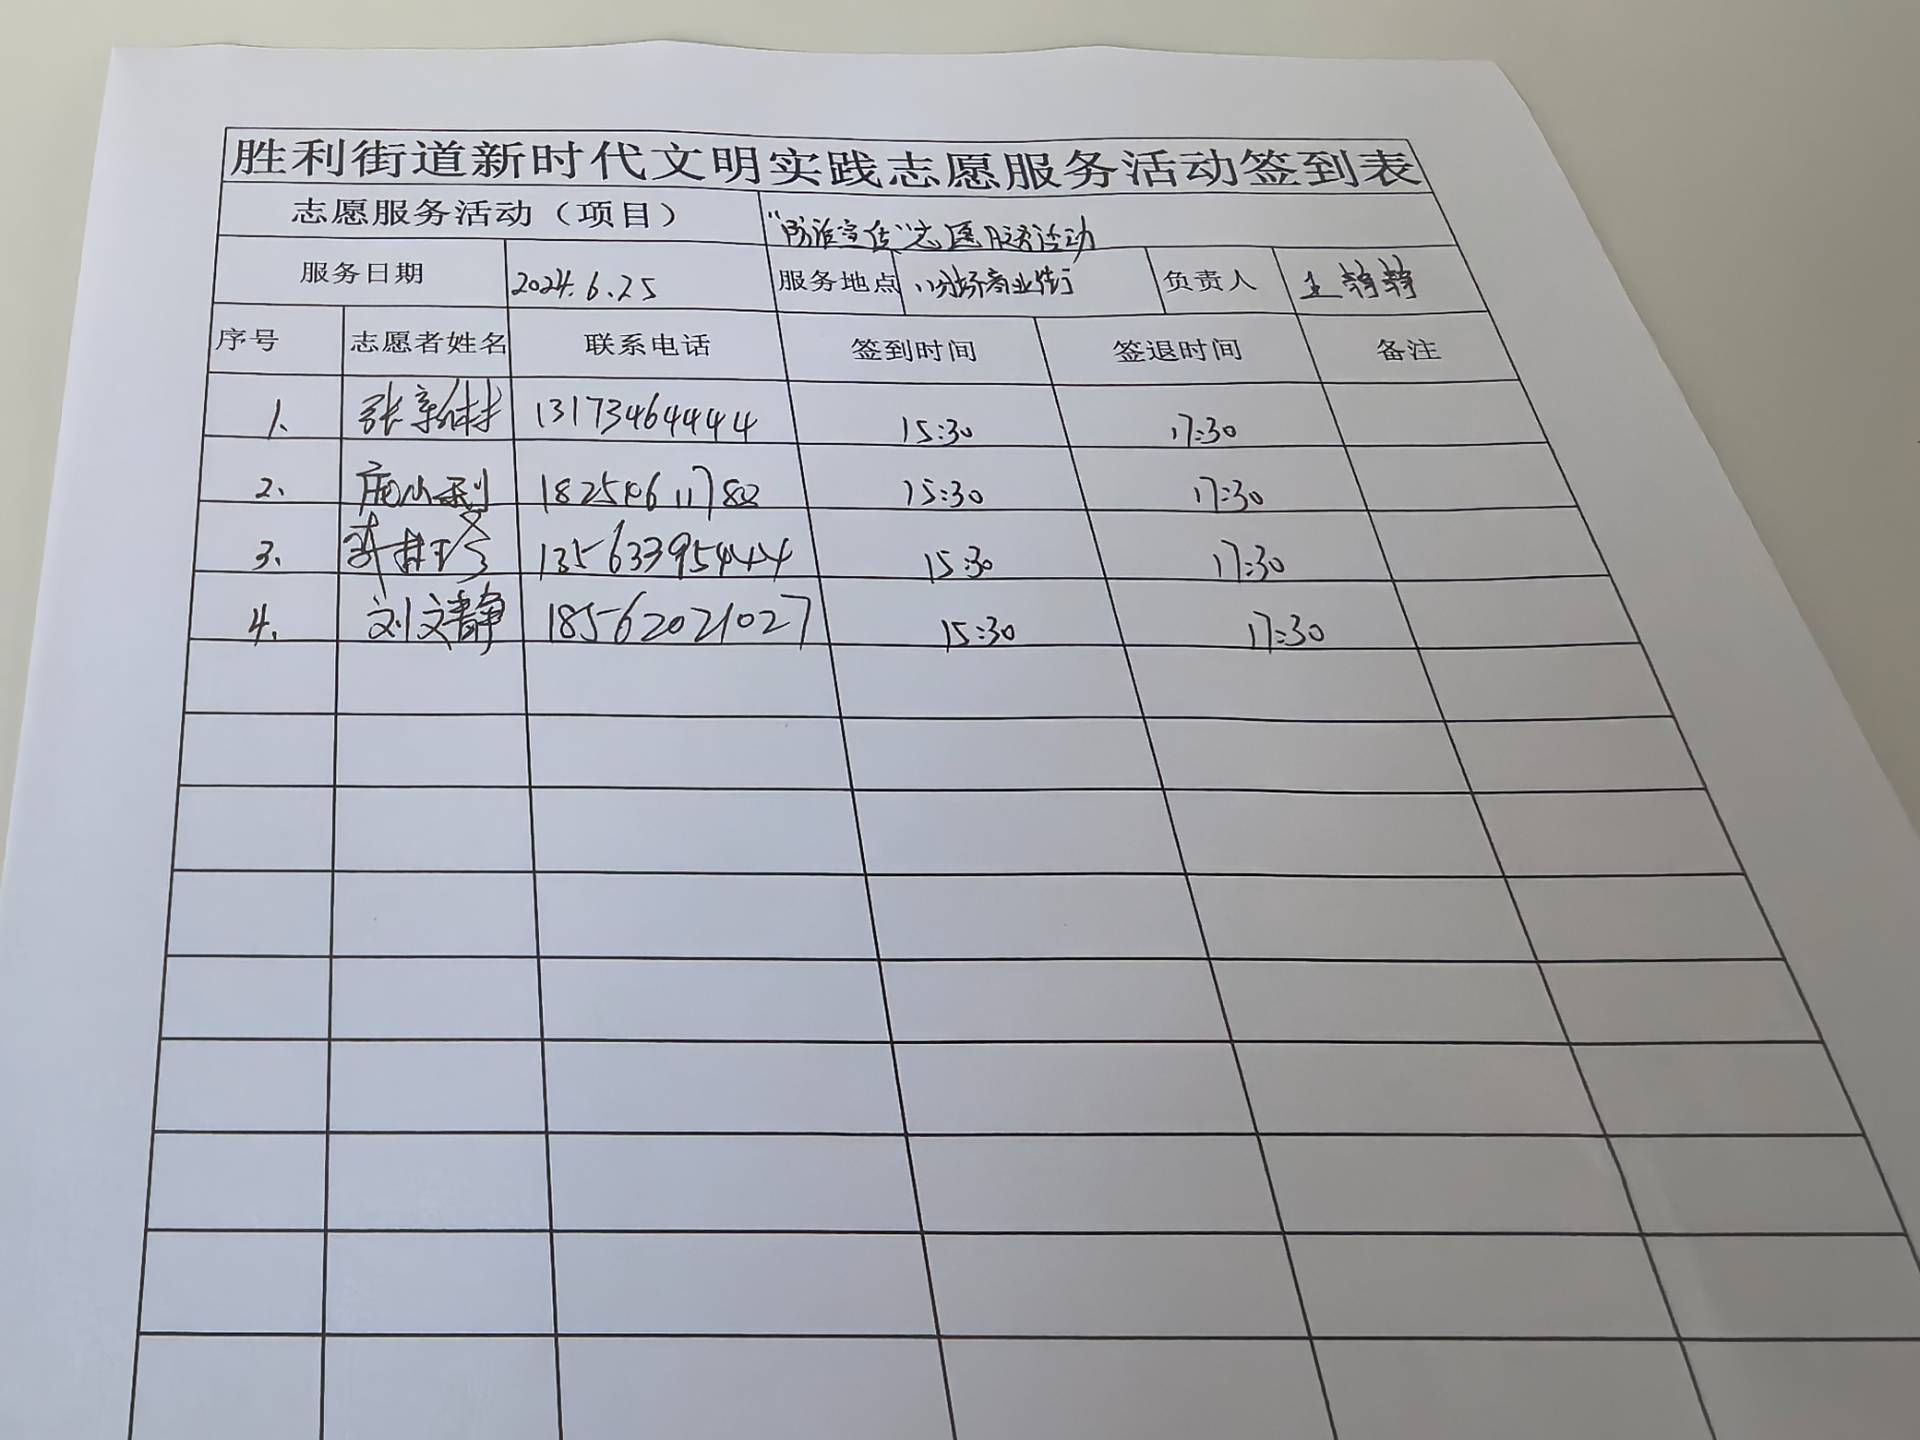 胜利街道新时代文明实践志愿服务活动签到表
志愿服务活动（项目） “防诈宣传”志愿服务活动
服务日期 2024.6.25 服务地点 八分场商业街 负责人 王静静
序号 志愿者姓名 联系电话 签到时间 签退时间 备注
1、 张新村 13173464444 15:30 17:30
2、 庞小利 15:30 17:30
3、 13563395444 15:30 17:30
4、 刘文静 18562021027 15:30 17:30